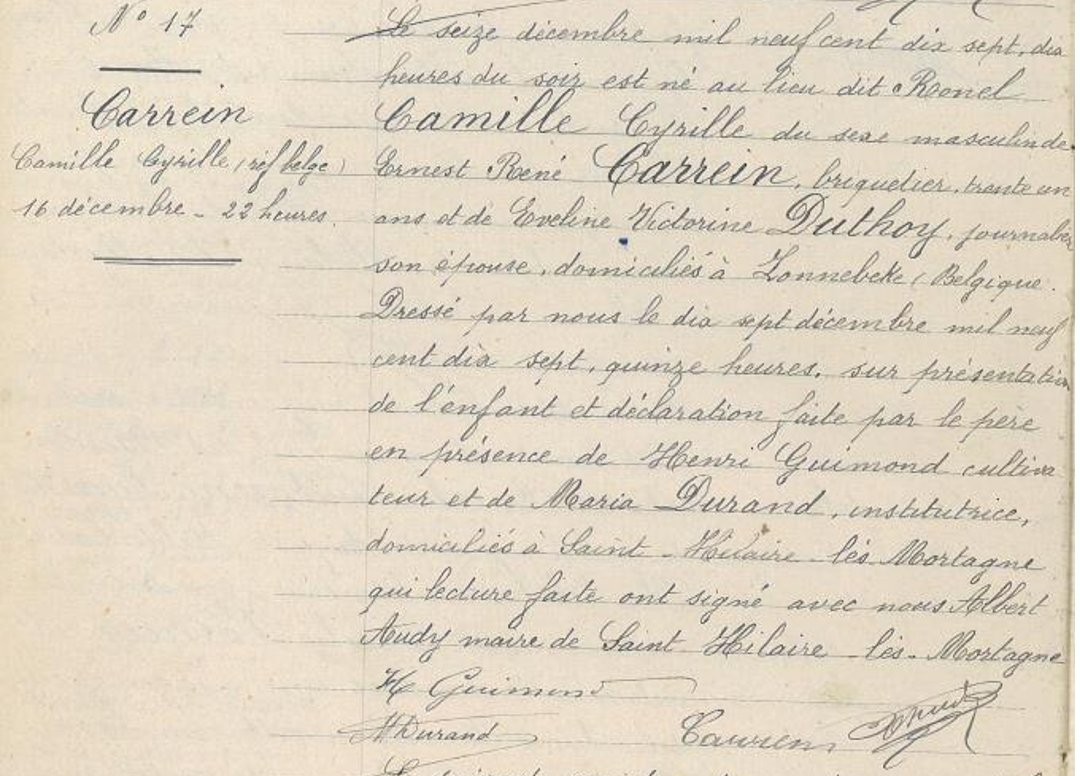 N° 17
Carrein
Camille Cyrille (réf belge)
16 décembre - 22 heures.
Le seize décembre mil neuf cent dix sept, dix
heures du soir est né au lieu dit Ronel
Camille Cyrille du sexe masculin de
Ernest René Carrein, briquetier, trente un
ans et de Eveline Victorine Duthoy, journalière
son épouse, domiciliés à Zonnebeke (Belgique.
Dressé par nous le dix sept décembre mil neuf
cent dix sept, quinze heures, sur présentation
de l'enfant et déclaration faite par le père
en présence de Henri Guimond cultiva
teur et de Maria Durand, institutrice,
domiciliés à Saint-Hilaire-lès-Mortagne
qui lecture faite ont signé avec nous Albert
Audy maire de Saint-Hilaire-lès-Mortagne
H Guimond
M Durand